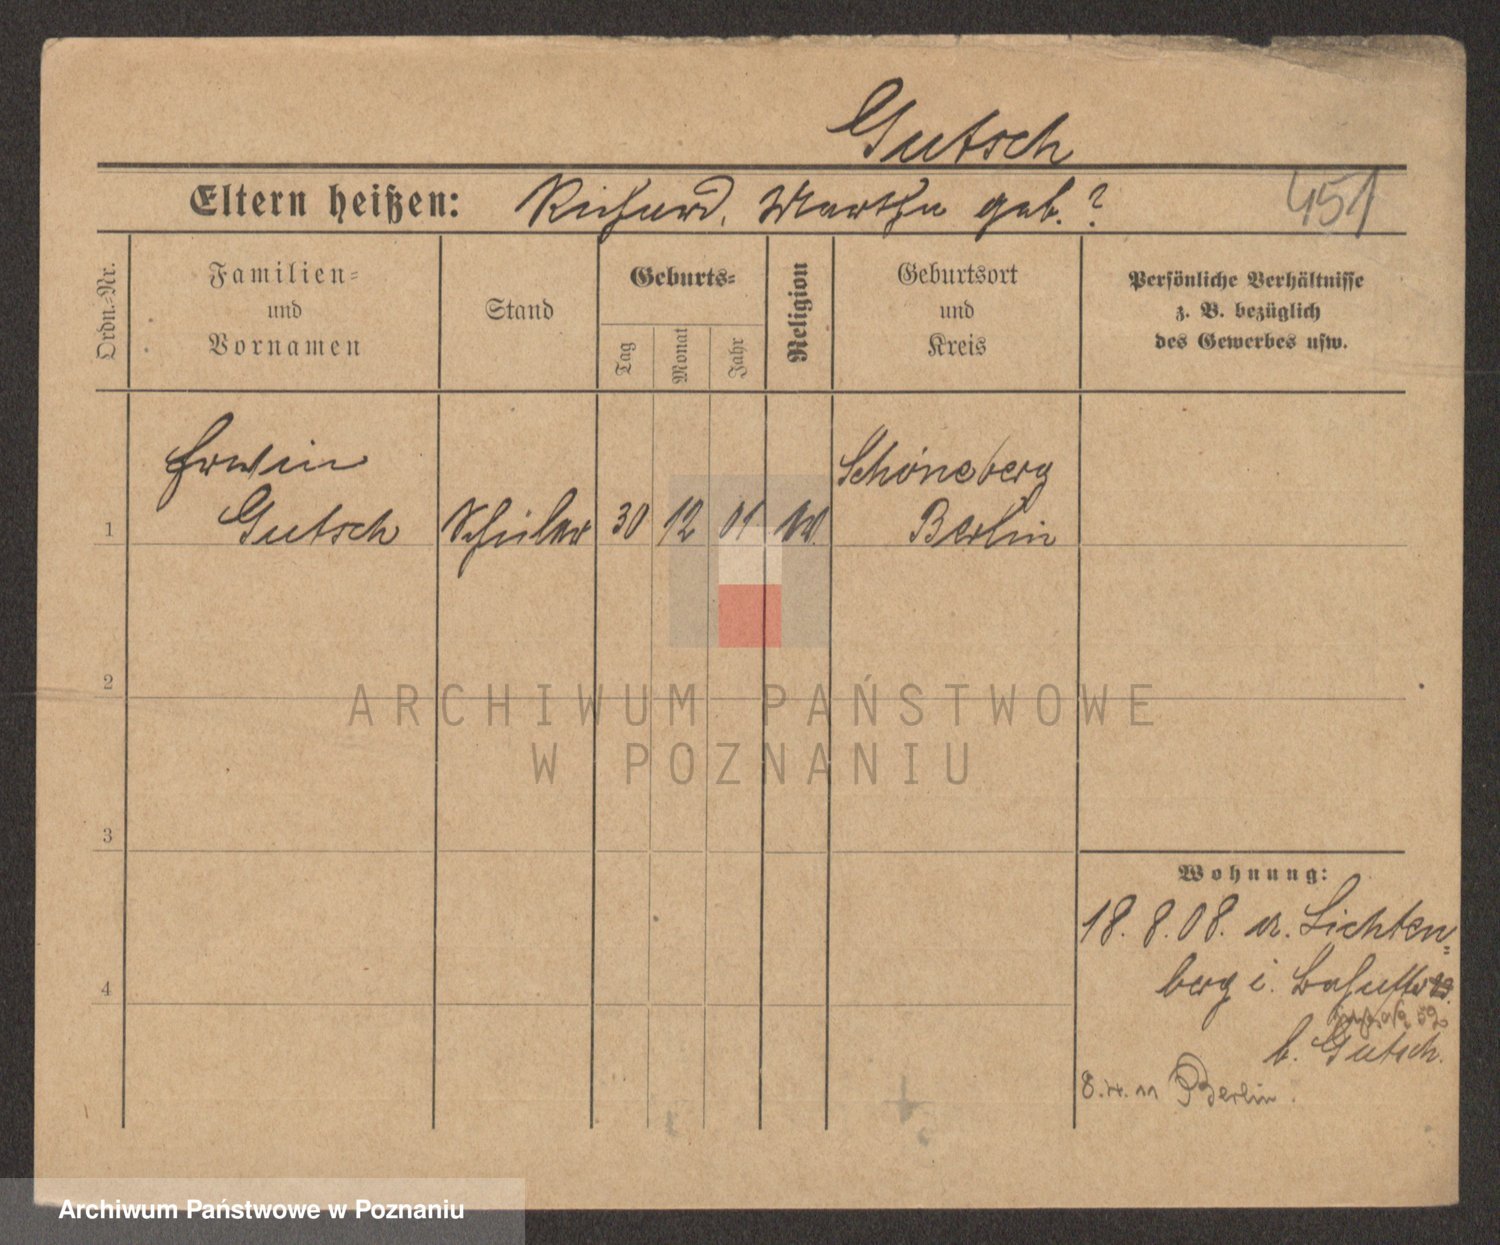 Gutsch
Eltern heißen: Richard, Martha geb. ?
451
Ordn.-Nr.
Familien-
und
Vornamen
Stand
Geburts-
Tag
Monat
Jahr
Religion
Geburtsort
und
Kreis
Persönliche Verhältnisse
z. B. bezüglich
des Gewerbes usw.
Erwin
Schöneberg
1 Gutsch Schüler 30 12 01 Berlin
2
3
4
ARCHIWUM PAŃSTWOWE
W POZNANIU
Wohnung:
18. 8. 08. Lichten-
berg i.
b. Gutsch.
8.4.11 Berlin.
Archiwum Państwowe w Poznaniu